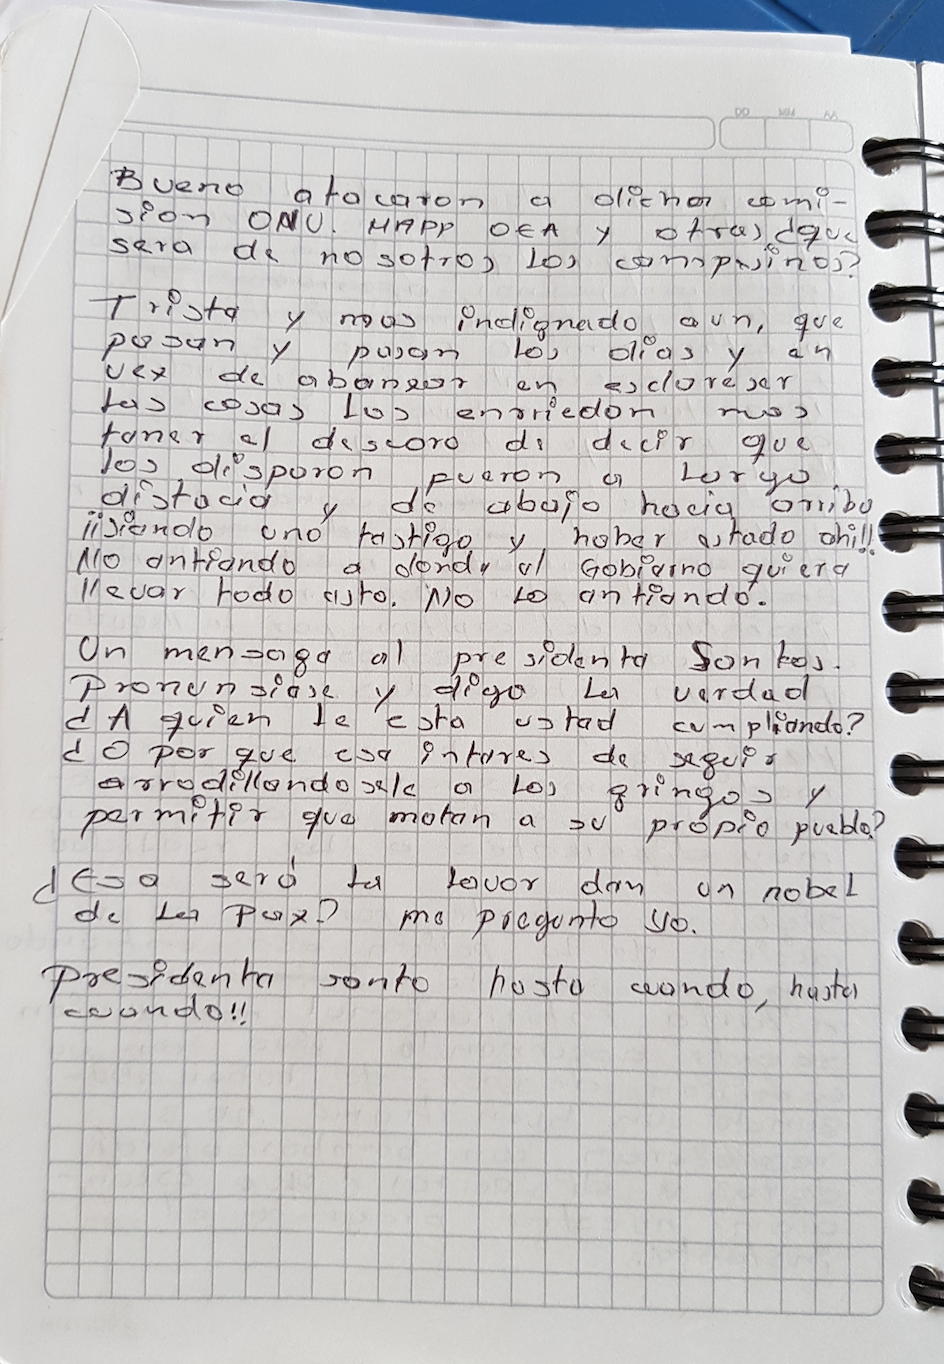 DD MM AA
Bueno atacaron a dicha comi-
sion ONU. MAPP OEA y otras, ¿que
sera de nosotros los campesinos?
Triste y mas indignado aun, que
pasan y pasan los dias y en
vez de abanzar en esclareser
las cosas los enrriedan mas
tener el descaro de decir que
los disparon fueron a largo
distacia y de abajo hacia arriba
¡¡siendo uno testigo y haber estado ahi!!
No entiendo a donde el Gobierno quiera
llevar todo esto. No lo entiendo.
Un mensage al presidente Santos.
Pronunsiase y diga la verdad
¿A quien le esta usted cumpliendo?
¿O por que esa interes de seguir
arrodillandosele a los gringos y
permitir que maten a su propio pueblo?
¿Esa será la lavor dan un nobel
de la Paz? me pregunto yo.
Presidente santo hasta cuando, hasta
cuando!!